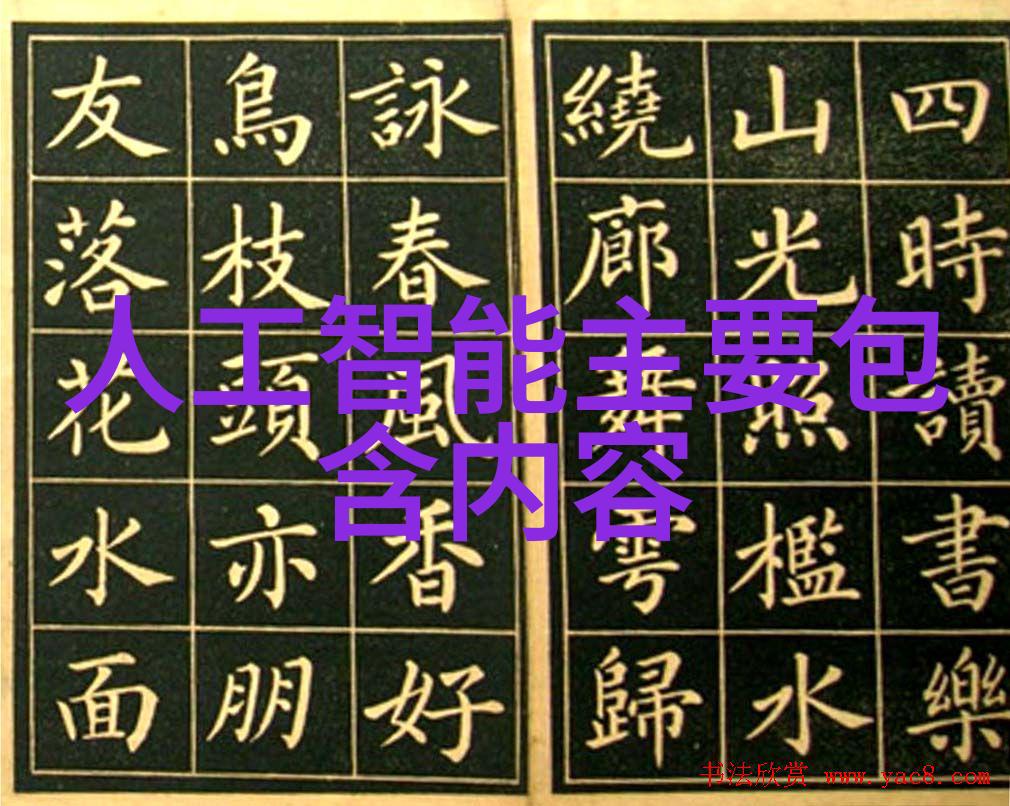 四時讀書樂
山光照檻水
繞廊舞雩歸
詠春風香好
鳥枝頭亦朋
友落花水面
人工智能主要包
含内容
书法欣赏 www.yac8.com